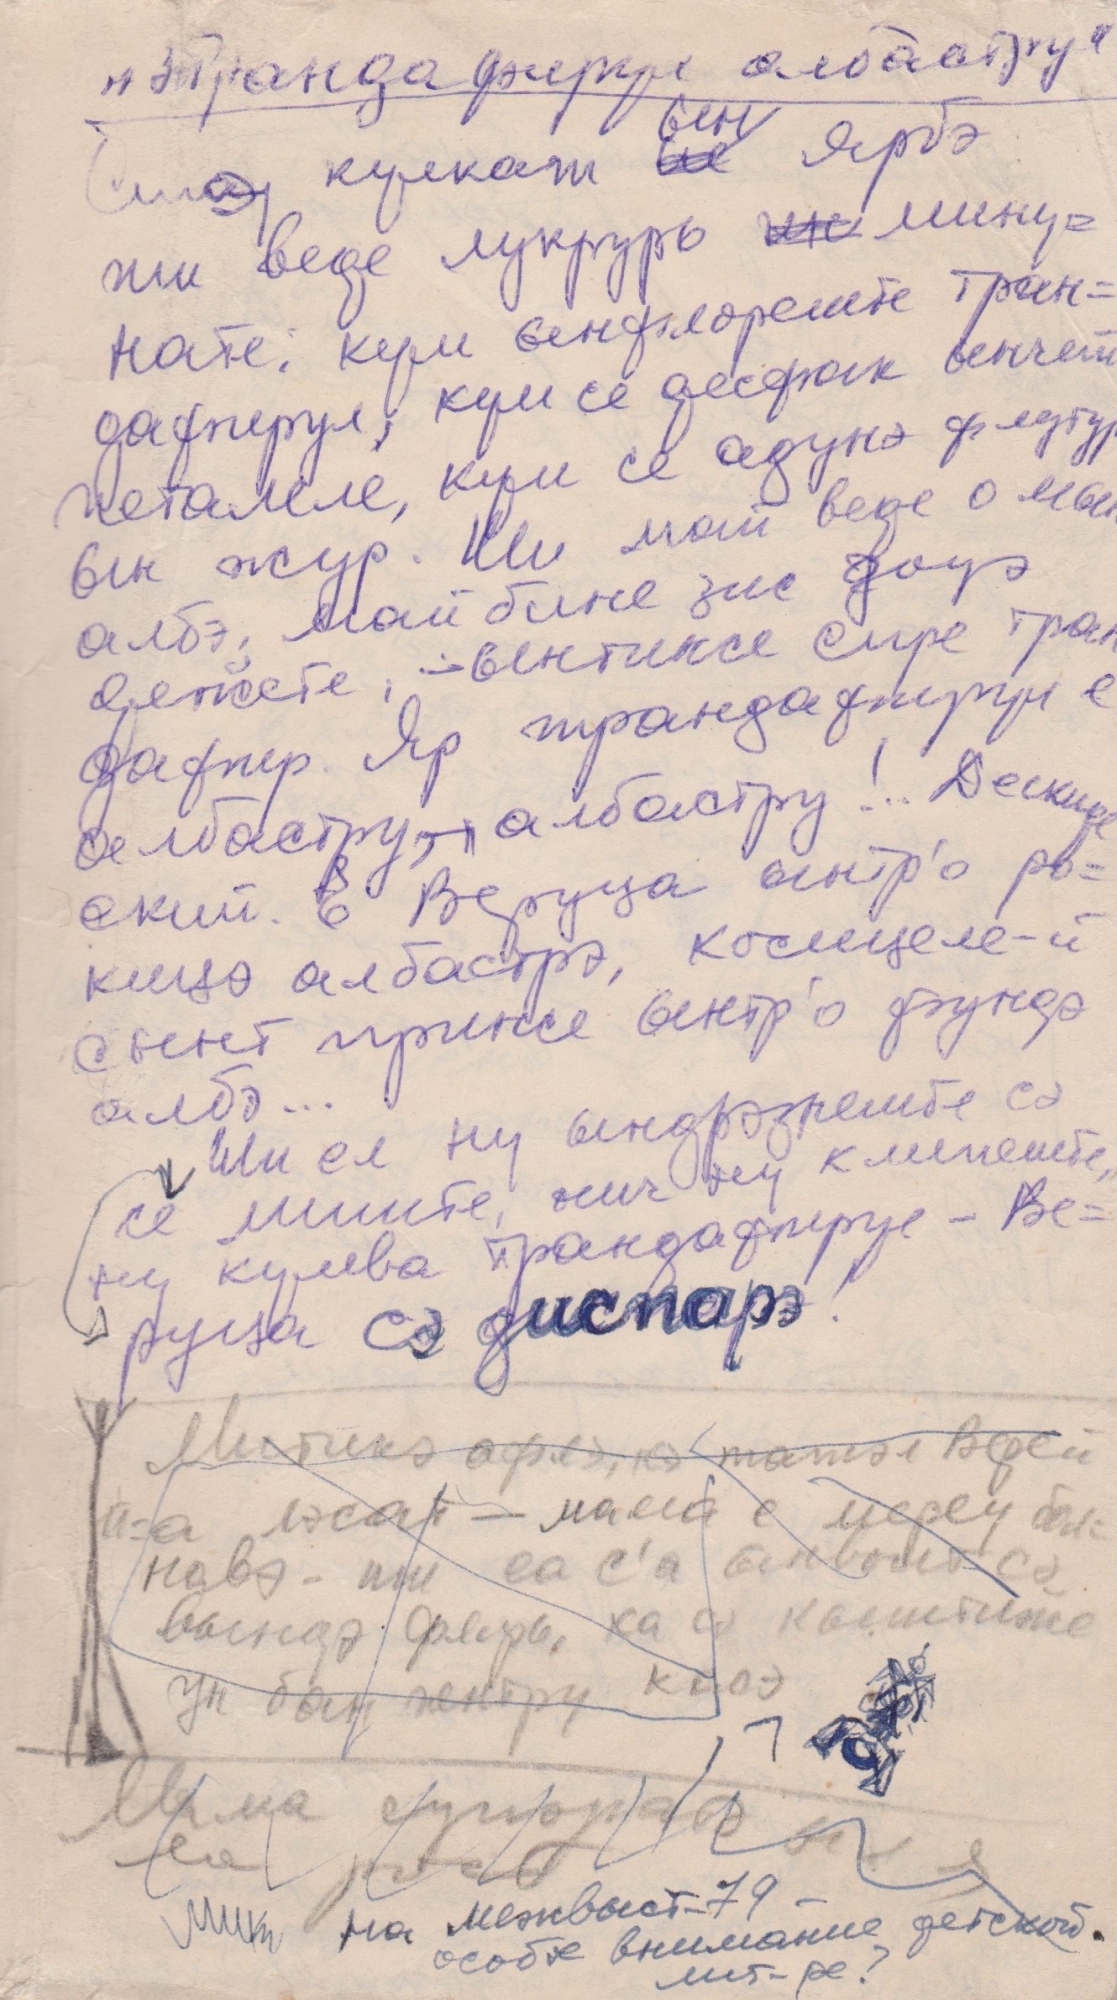 „Трандафирул албастру"
кулкат ын Ярбэ
ши веде лукрурь мину=
нате: кум ынфлореште тран=
дафирул, кум се десфак ынчет
петалиле, кум се адунэ флутурь
ын жур. Ши май веде о мынэ
албэ, май бине зис доуэ
деӂете, – ынтинсе спре тран
дафир. Яр трандафирул е
албастру, албастру!.. Дескиде
окий. В Веруца ынтр'о ро=
кицэ албастрэ, косицеле-й
сынт принсе ынтр'о фундэ
албэ...
Ши ел ну ындрэзнеште сэ
се миште, нич ну клипеште,
ну кумва трандафирул – Ве=
руца сэ диспарэ!
Митикэ афлэ, кэ татэл Верей
й-а лэсат – мама е мереу бол=
навэ – ши еа с'а ынвоит сэ
вындэ флорь, ка сэ кыштиӂе
ун бан пентру касэ
Мама
на межвыст-79 –
особое внимание детской
лит-ре?